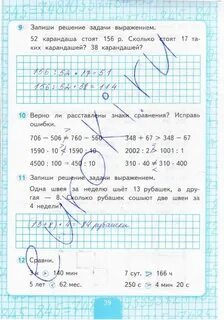 9 Запиши решение задачи выражением.
52 карандаша стоят 156 р. Сколько стоят 17 та-
ких карандашей? 38 карандашей?
156 : 52 · 17 = 51
156 : 52 · 38 = 114
10 Верно ли расставлены знаки сравнения? Исправь
ошибки.
706 − 506 = 760 − 560 348 + 67 > 348 − 67
1590 · 10 < 1590 : 10 2002 : 1 1001 : 1
4500 : 100 450 : 10 310 · 40 310 · 400
11 Запиши решение задачи выражением.
Одна швея за неделю шьёт 13 рубашек, а дру-
гая — 8. Сколько рубашек сошьют две швеи за
4 недели?
(13 + 8) · 4 = 84 рубашки
12 Сравни.
140 мин 7 сут. > 166 ч
5 лет < 62 мес. 250 с 4 мин 20 с
39